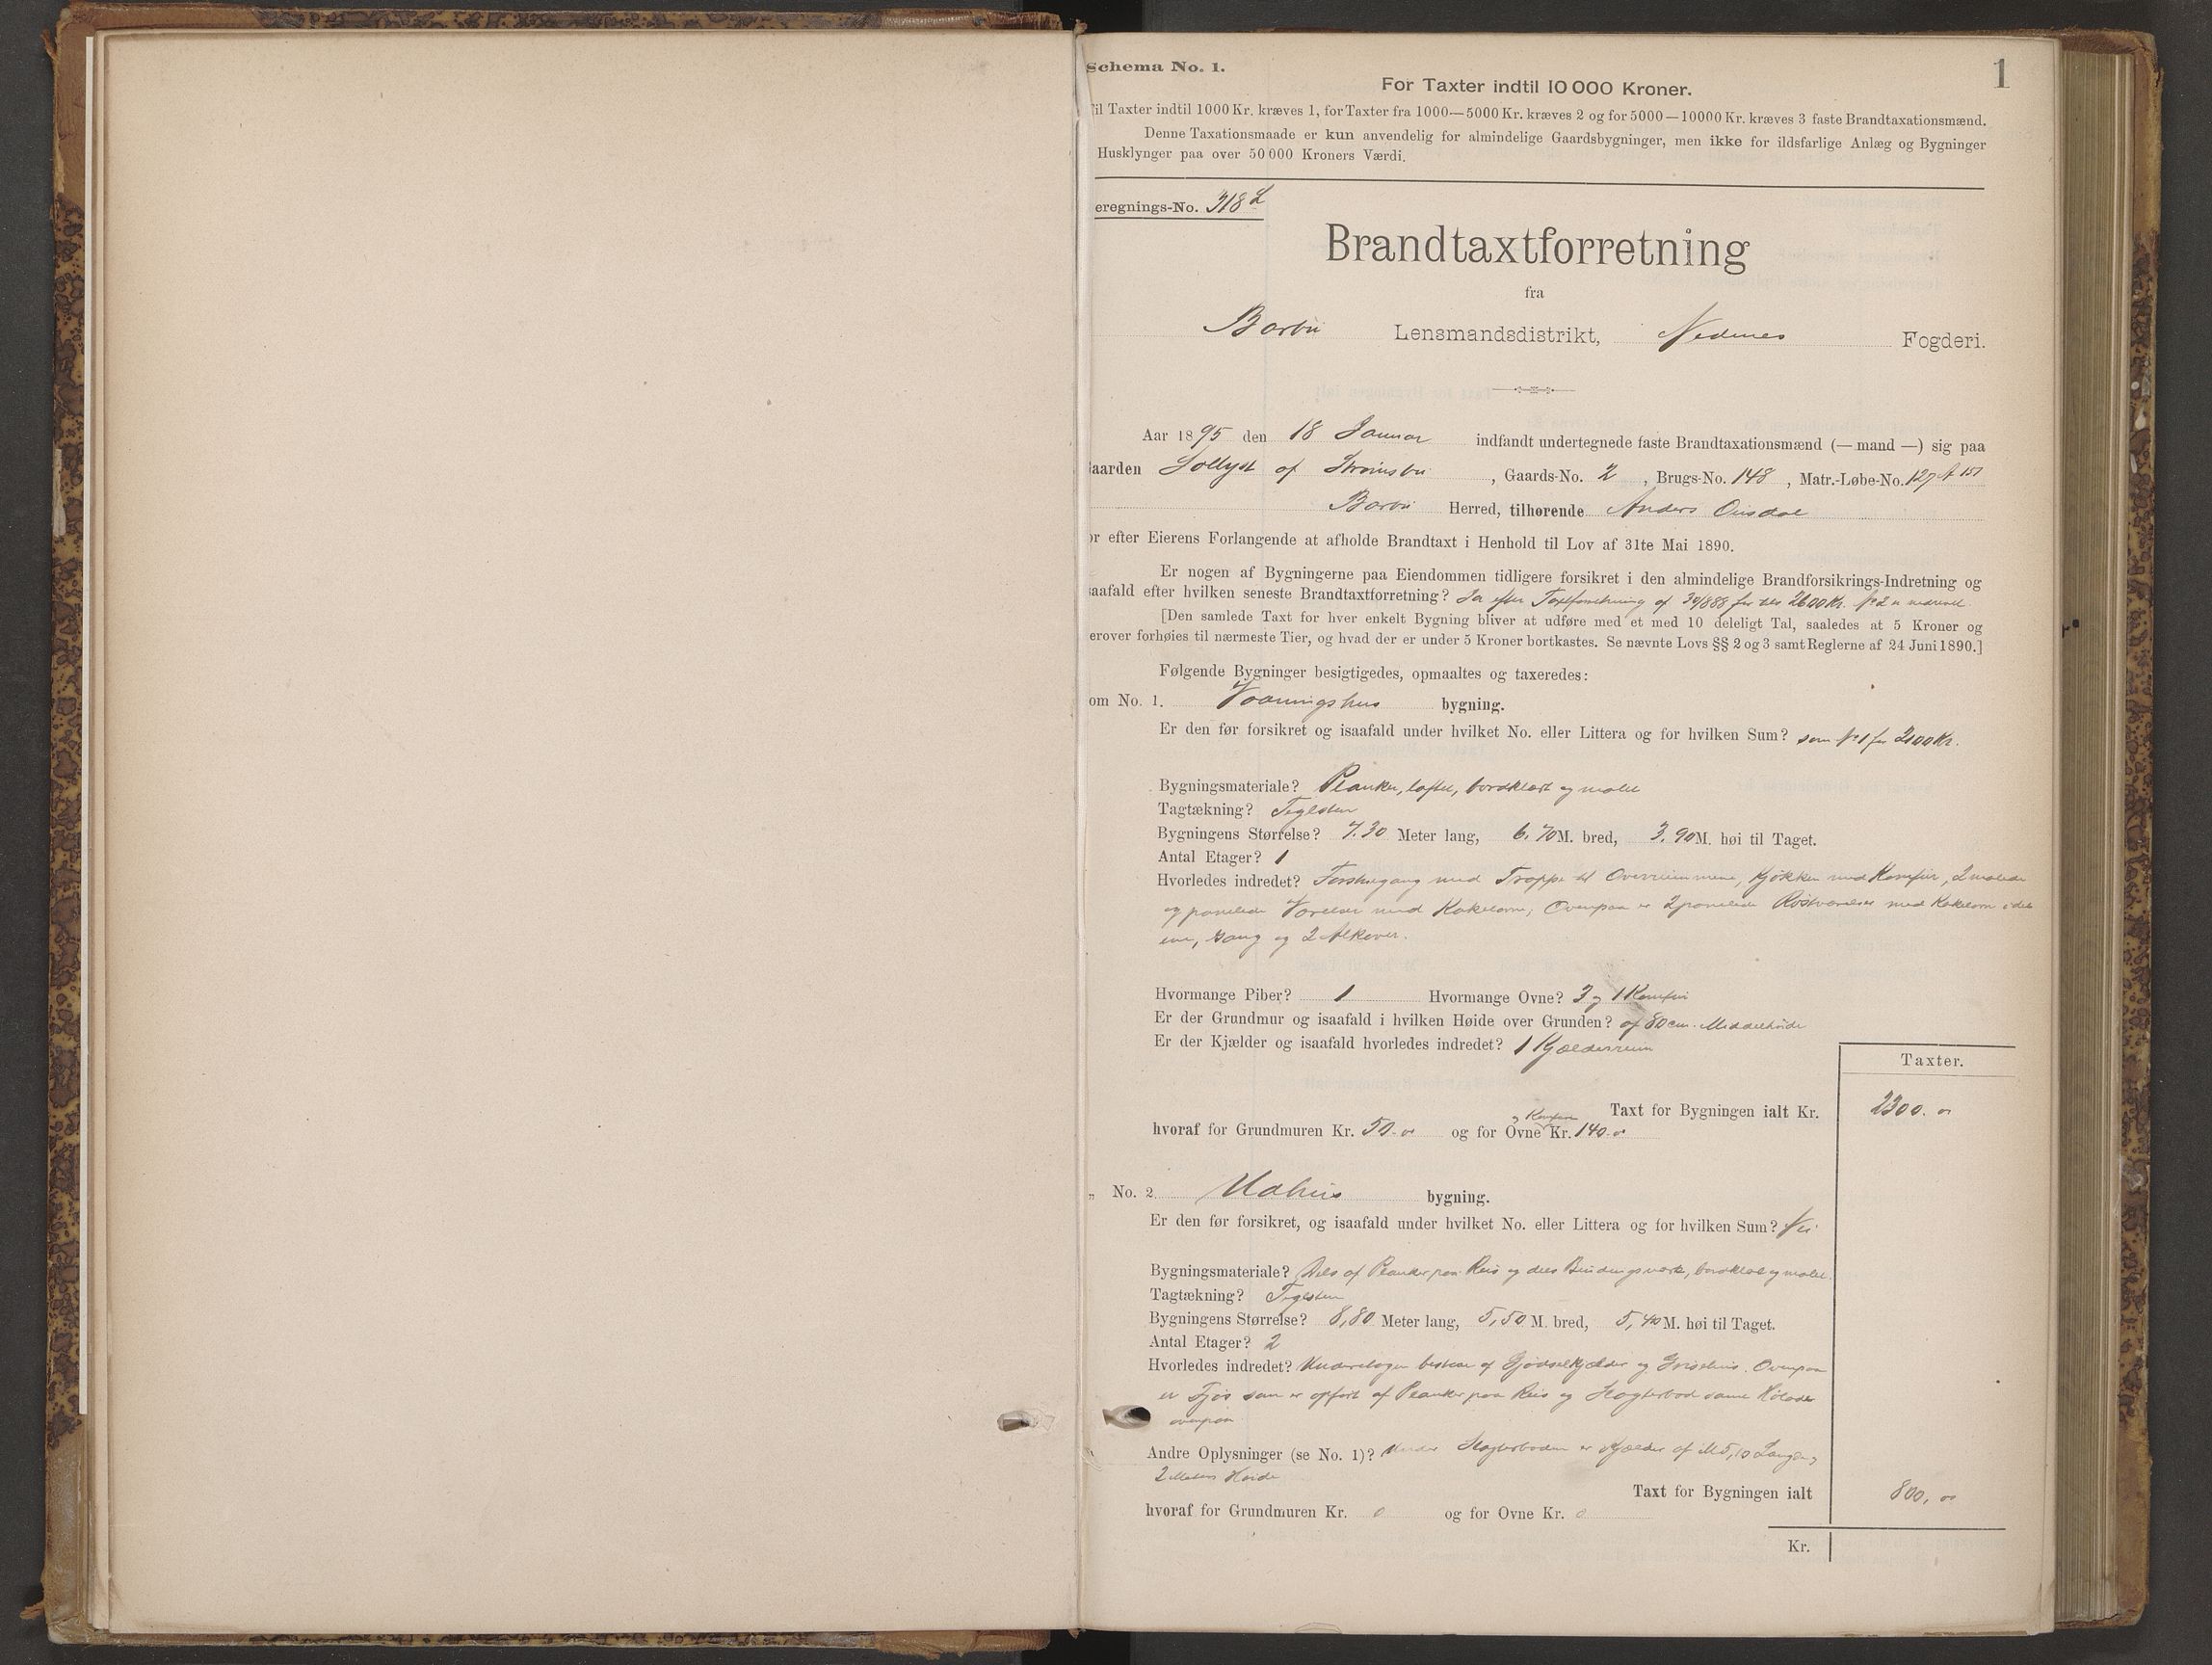 1
Schema No. 1.
For Taxter indtil 10 000 Kroner.
Til Taxter indtil 1000 Kr. kræves 1, for Taxter fra 1000—5000 Kr. kræves 2 og for 5000—10000 Kr. kræves 3 faste Brandtaxationsmænd.
Denne Taxationsmaade er kun anvendelig for almindelige Gaardsbygninger, men ikke for ildsfarlige Anlæg og Bygninger
Husklynger paa over 50 000 Kroners Værdi.
eregnings-No. 318
Brandtaxtforretning
fra
Barbu Lensmandsdistrikt, Nedenes Fogderi.
Aar 1895 den 18 Januar indfandt undertegnede faste Brandtaxationsmænd (— mand —) sig paa
aarden Sollyst af Strømsbu, Gaards-No. 2, Brugs-No. 148, Matr.-Løbe-No. 127
Barbu Herred, tilhørende Anders
or efter Eierens Forlangende at afholde Brandtaxt i Henhold til Lov af 31te Mai 1890.
Er nogen af Bygningerne paa Eiendommen tidligere forsikret i den almindelige Brandforsikrings-Indretning og
aafald efter hvilken seneste Brandtaxtforretning? Ja efter Taxtforretning af for 2600 Kr. No 2 er nedrevet
[Den samlede Taxt for hver enkelt Bygning bliver at udføre med et med 10 deleligt Tal, saaledes at 5 Kroner og
erover forhøies til nærmeste Tier, og hvad der er under 5 Kroner bortkastes. Se nævnte Lovs §§ 2 og 3 samt Reglerne af 24 Juni 1890.]
Følgende Bygninger besigtigedes, opmaaltes og taxeredes:
om No. 1. Vaaningshus bygning.
Er den før forsikret og isaafald under hvilket No. eller Littera og for hvilken Sum? som No 1 for 2100 Kr.
Bygningsmateriale? Planker, laftet, bordklædt og malet
Tagtækning? Teglsten
Bygningens Størrelse? 7.30 Meter lang, 6.70 M. bred, 3.90 M. høi til Taget.
Antal Etager? 1
Hvorledes indredet? Forstuegang med Trappe til Overrummene, Kjøkken med Komfur, 2 malede
og panelede Værelser med Kakelovn, Ovenpaa er 2 panelede Røstværelser med Kakelovn i det
ene, Gang og 2 Alkover.
Hvormange Piber? 1 Hvormange Ovne? 3 og 1 Komfur
Er der Grundmur og isaafald i hvilken Høide over Grunden? af 80 cm. Middelhøide
Er der Kjælder og isaafald hvorledes indredet? 1 Kjælderrum
Taxter.
Taxt for Bygningen ialt Kr. 2300. oo
og Komfur
hvoraf for Grundmuren Kr. 50. oo og for Ovne Kr. 140. oo
„ No. 2 Udhus bygning.
Er den før forsikret, og isaafald under hvilket No. eller Littera og for hvilken Sum? Nei
Bygningsmateriale? Dels af Planker paa Reis og dels Bindingsværk, bordklædt og malet.
Tagtækning? Teglsten
Bygningens Størrelse? 8,80 Meter lang, 5,50 M. bred, 5,40 M. høi til Taget.
Antal Etager? 2
Hvorledes indredet? Underetagen bestaar af Gjødselkjælder og Grisehus. Ovenpaa
er Fjøs som er opført af Planker paa Reis og Slagterbod samt Hølader
ovenpaa
Andre Oplysninger (se No. 1)? Under Slagterboden er Kjælder af M 5,10 Længde og
2 Meters Høide
Taxt for Bygningen ialt 800, oo
hvoraf for Grundmuren Kr. 0 og for Ovne Kr. 0
Kr.